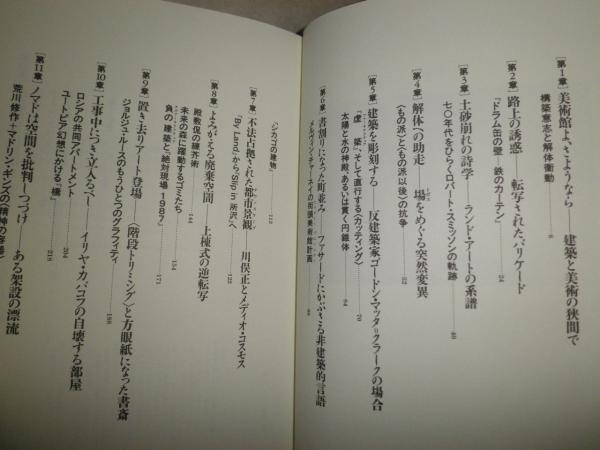 [第1章]美術館よさようなら 建築と美術の狭間で
構築意志と解体衝動
[第2章]路上の誘惑 転写されたバリケード
「ドラム缶の壁——鉄のカーテン」 24
[第3章]土砂崩れの詩学 ランド・アートの系譜
七〇年代をひらくロバート・スミッソンの軌跡 40
[第4章]解体への助走——場をめぐる突然変異
〈もの派〉と〈もの派以後〉の抗争
[第5章]建築を彫刻する——反建築家ゴードン・マッタ=クラークの場合
「虚築」、そして直行する〈カッティング〉
太陽と水の神殿、あるいは貫く円錐体
[第6章]書割りになった町並み ファサードにかぶさる非建築的言語
「シカゴの建物」 112
[第7章]不法占拠された都市景観 川俣正とメディオ・コスモス
「By Land」から「Slip in 所沢」へ 122
[第8章]よみがえる廃棄空間——上棟式の逆転写
殿敷侃の錬芥術 144
未来の森に躍動するゴミたち 154
負の〈建築〉と「絶対現場1987」 171
[第9章]置き去りアート登場 〈階段トリミング〉と方眼紙になった書斎
ジョルジュ・ルースのもうひとつのグラフィティ 188
[第10章]工事中につき立入るべし イリヤ・カバコフの自壊する部屋
ロシアの共同アパートメント 204
ユートピア幻想にかける「橋」 218
[第11章]ノマドは空間を批判しつづけ ある架設の漂流
荒川修作+マドリン・ギンズの〈精神の容器〉